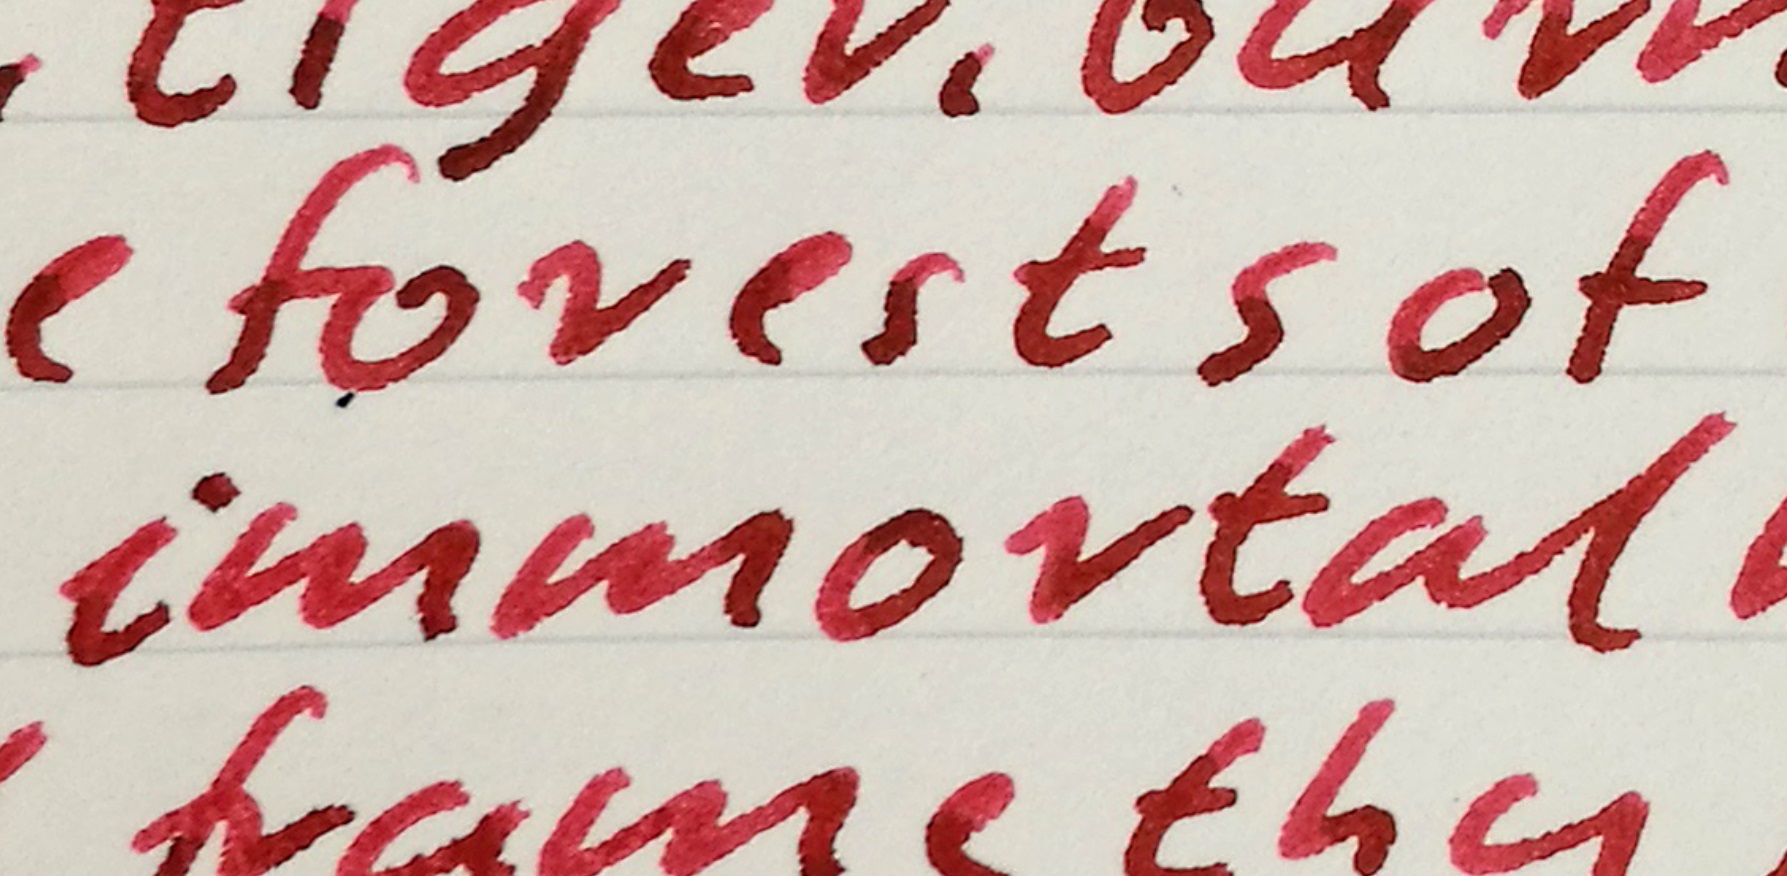 , tiger, burn
e forests of
immortal
frame thy